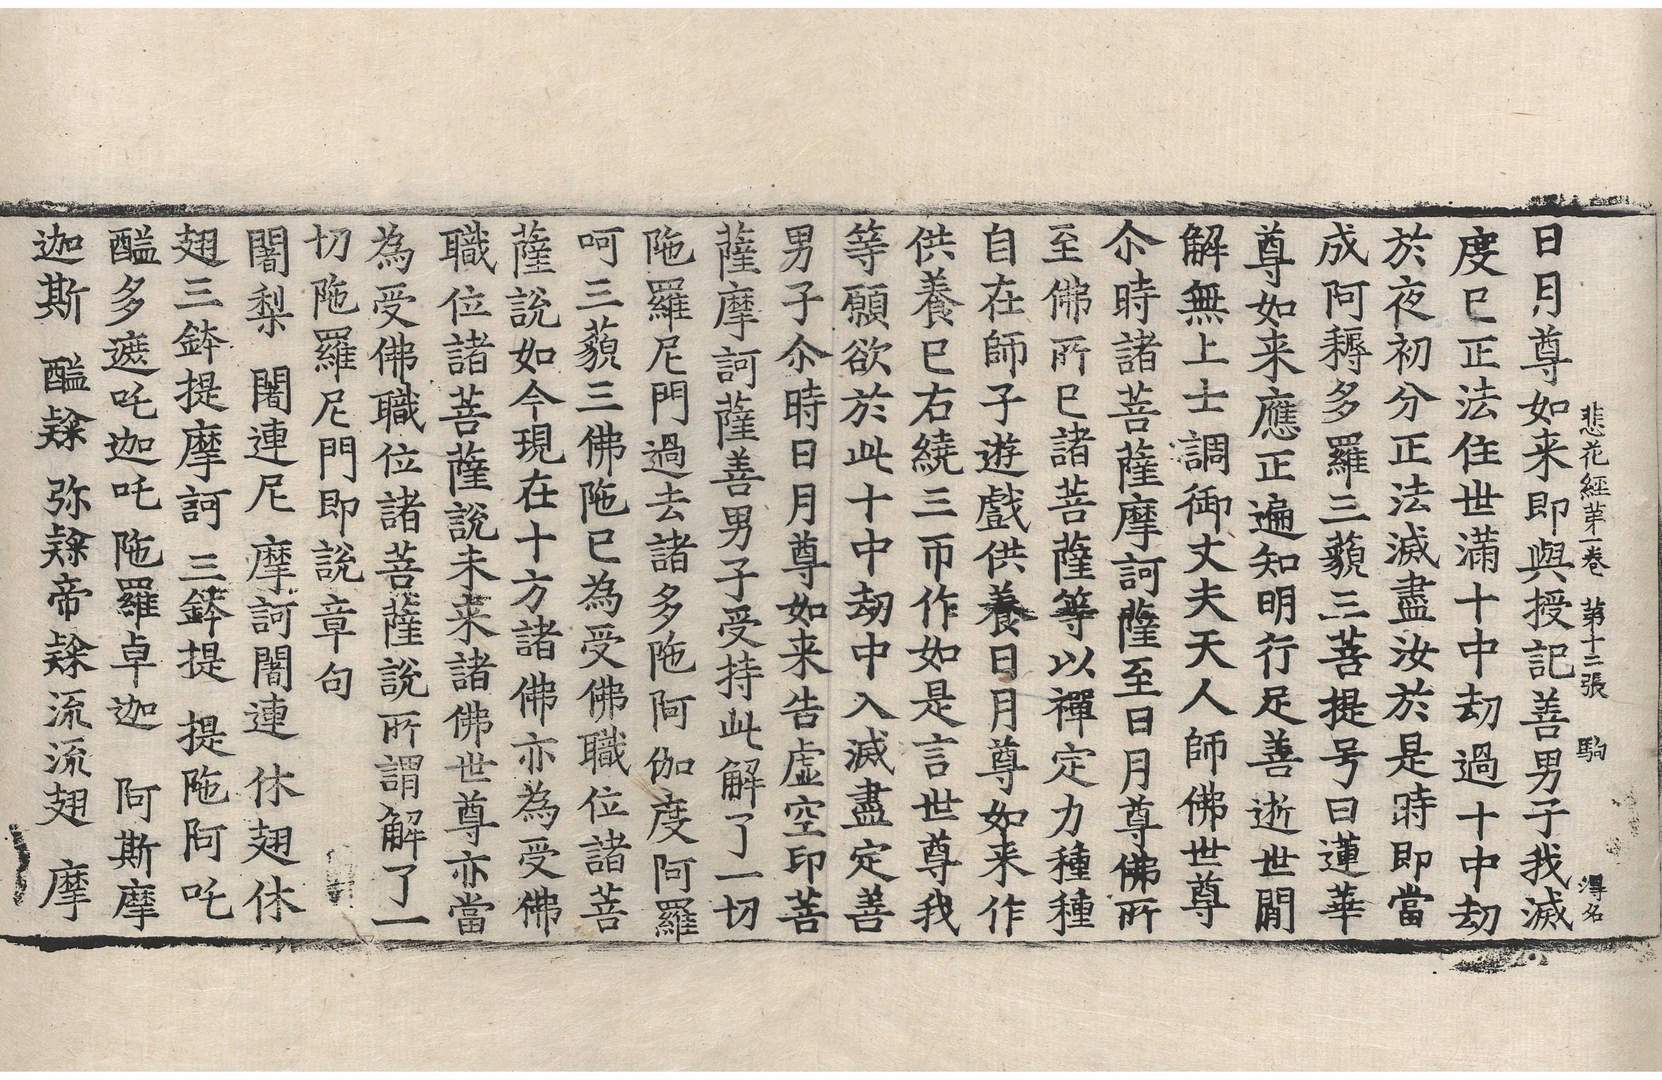 悲花經第一卷 第十二張 駒 淂名
日月尊如来即與授記善男子我滅
度已正法住世滿十中劫過十中劫
於夜初分正法滅盡汝於是時即當
成阿耨多羅三藐三菩提号曰蓮華
尊如来應正遍知明行足善逝世閒
解無上士調御丈夫天人師佛世尊
尒時諸菩薩摩訶薩至日月尊佛所
至佛所已諸菩薩等以禪定力種種
自在師子遊戲供養日月尊如来作
供養已右繞三帀作如是言世尊我
等願欲於此十中劫中入滅盡定善
男子尒時日月尊如来告虛空印菩
薩摩訶薩善男子受持此解了一切
陁羅尼門過去諸多陁阿伽度阿羅
呵三藐三佛陁已為受佛職位諸菩
薩說如今現在十方諸佛亦為受佛
職位諸菩薩說未来諸佛世尊亦當
為受佛職位諸菩薩說所謂解了一
切陁羅尼門即說章句
闍梨 闍連尼 摩訶闍連 休翅休
翅三鉢提摩訶 三鉢提 提陁阿吒
醯多遮吒迦吒 陁羅卓迦 阿斯摩
迦斯 醯隸 弥隸帝隸流流翅 摩